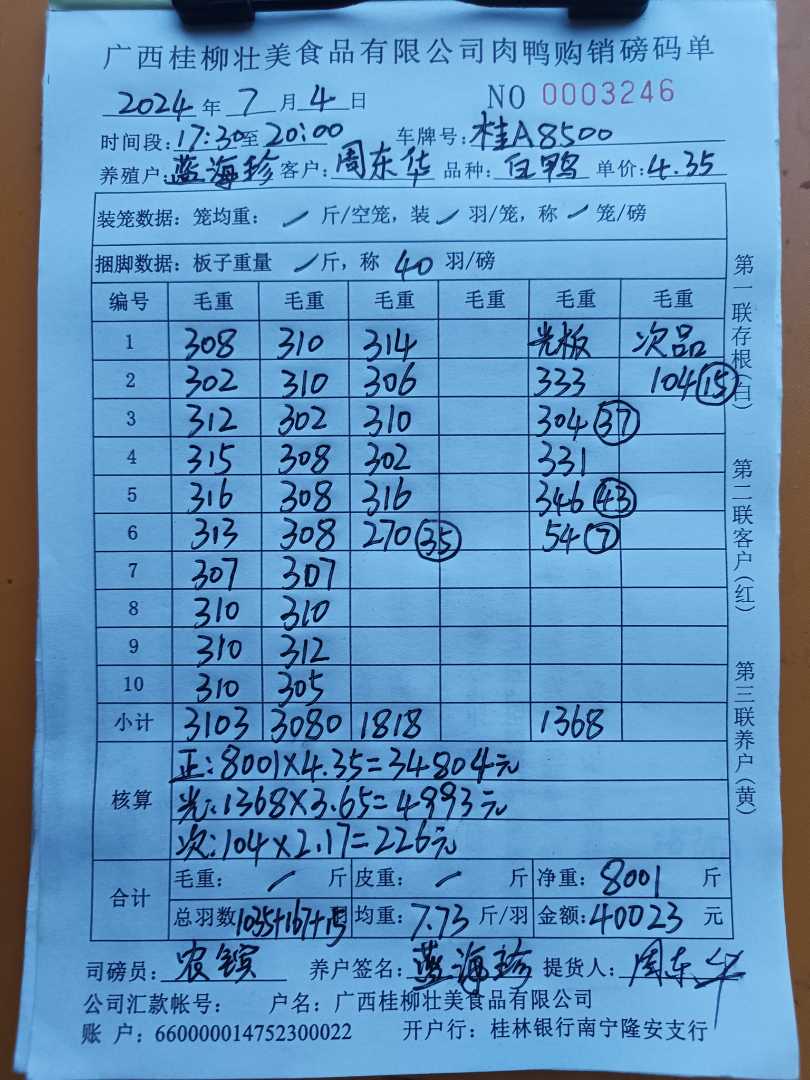 广西桂柳壮美食品有限公司肉鸭购销磅码单
2024年7月4日 NO 0003246
时间段:17:30至20:00 车牌号:桂A8500
养殖户:蓝海珍 客户:周东华 品种:白鸭 单价:4.35
装笼数据: 笼均重: / 斤/空笼, 装 / 羽/笼, 称 / 笼/磅
捆脚数据: 板子重量 / 斤, 称 40 羽/磅
编号 毛重 毛重 毛重 毛重 毛重 毛重
1 308 310 314 光板 次品
2 302 310 306 333 104 15
3 312 302 310 304 37
4 315 308 302 331
5 316 308 316 346 43
6 313 308 270 35 54 7
7 307 307
8 310 310
9 310 312
10 310 305
小计 3103 3080 1818 1368
核算
正:8001×4.35=34804元
光:1368×3.65=4993元
次:104×2.17=226元
合计
毛重: / 斤 皮重: / 斤 净重: 8001 斤
总羽数1035+167+15 均重: 7.73 斤/羽 金额: 40023 元
司磅员: 农镔 养户签名: 蓝海珍 提货人: 周东华
公司汇款帐号: 户名: 广西桂柳壮美食品有限公司
账 户: 660000014752300022 开户行: 桂林银行南宁隆安支行
第一联存根(白)
第二联客户(红)
第三联养户(黄)